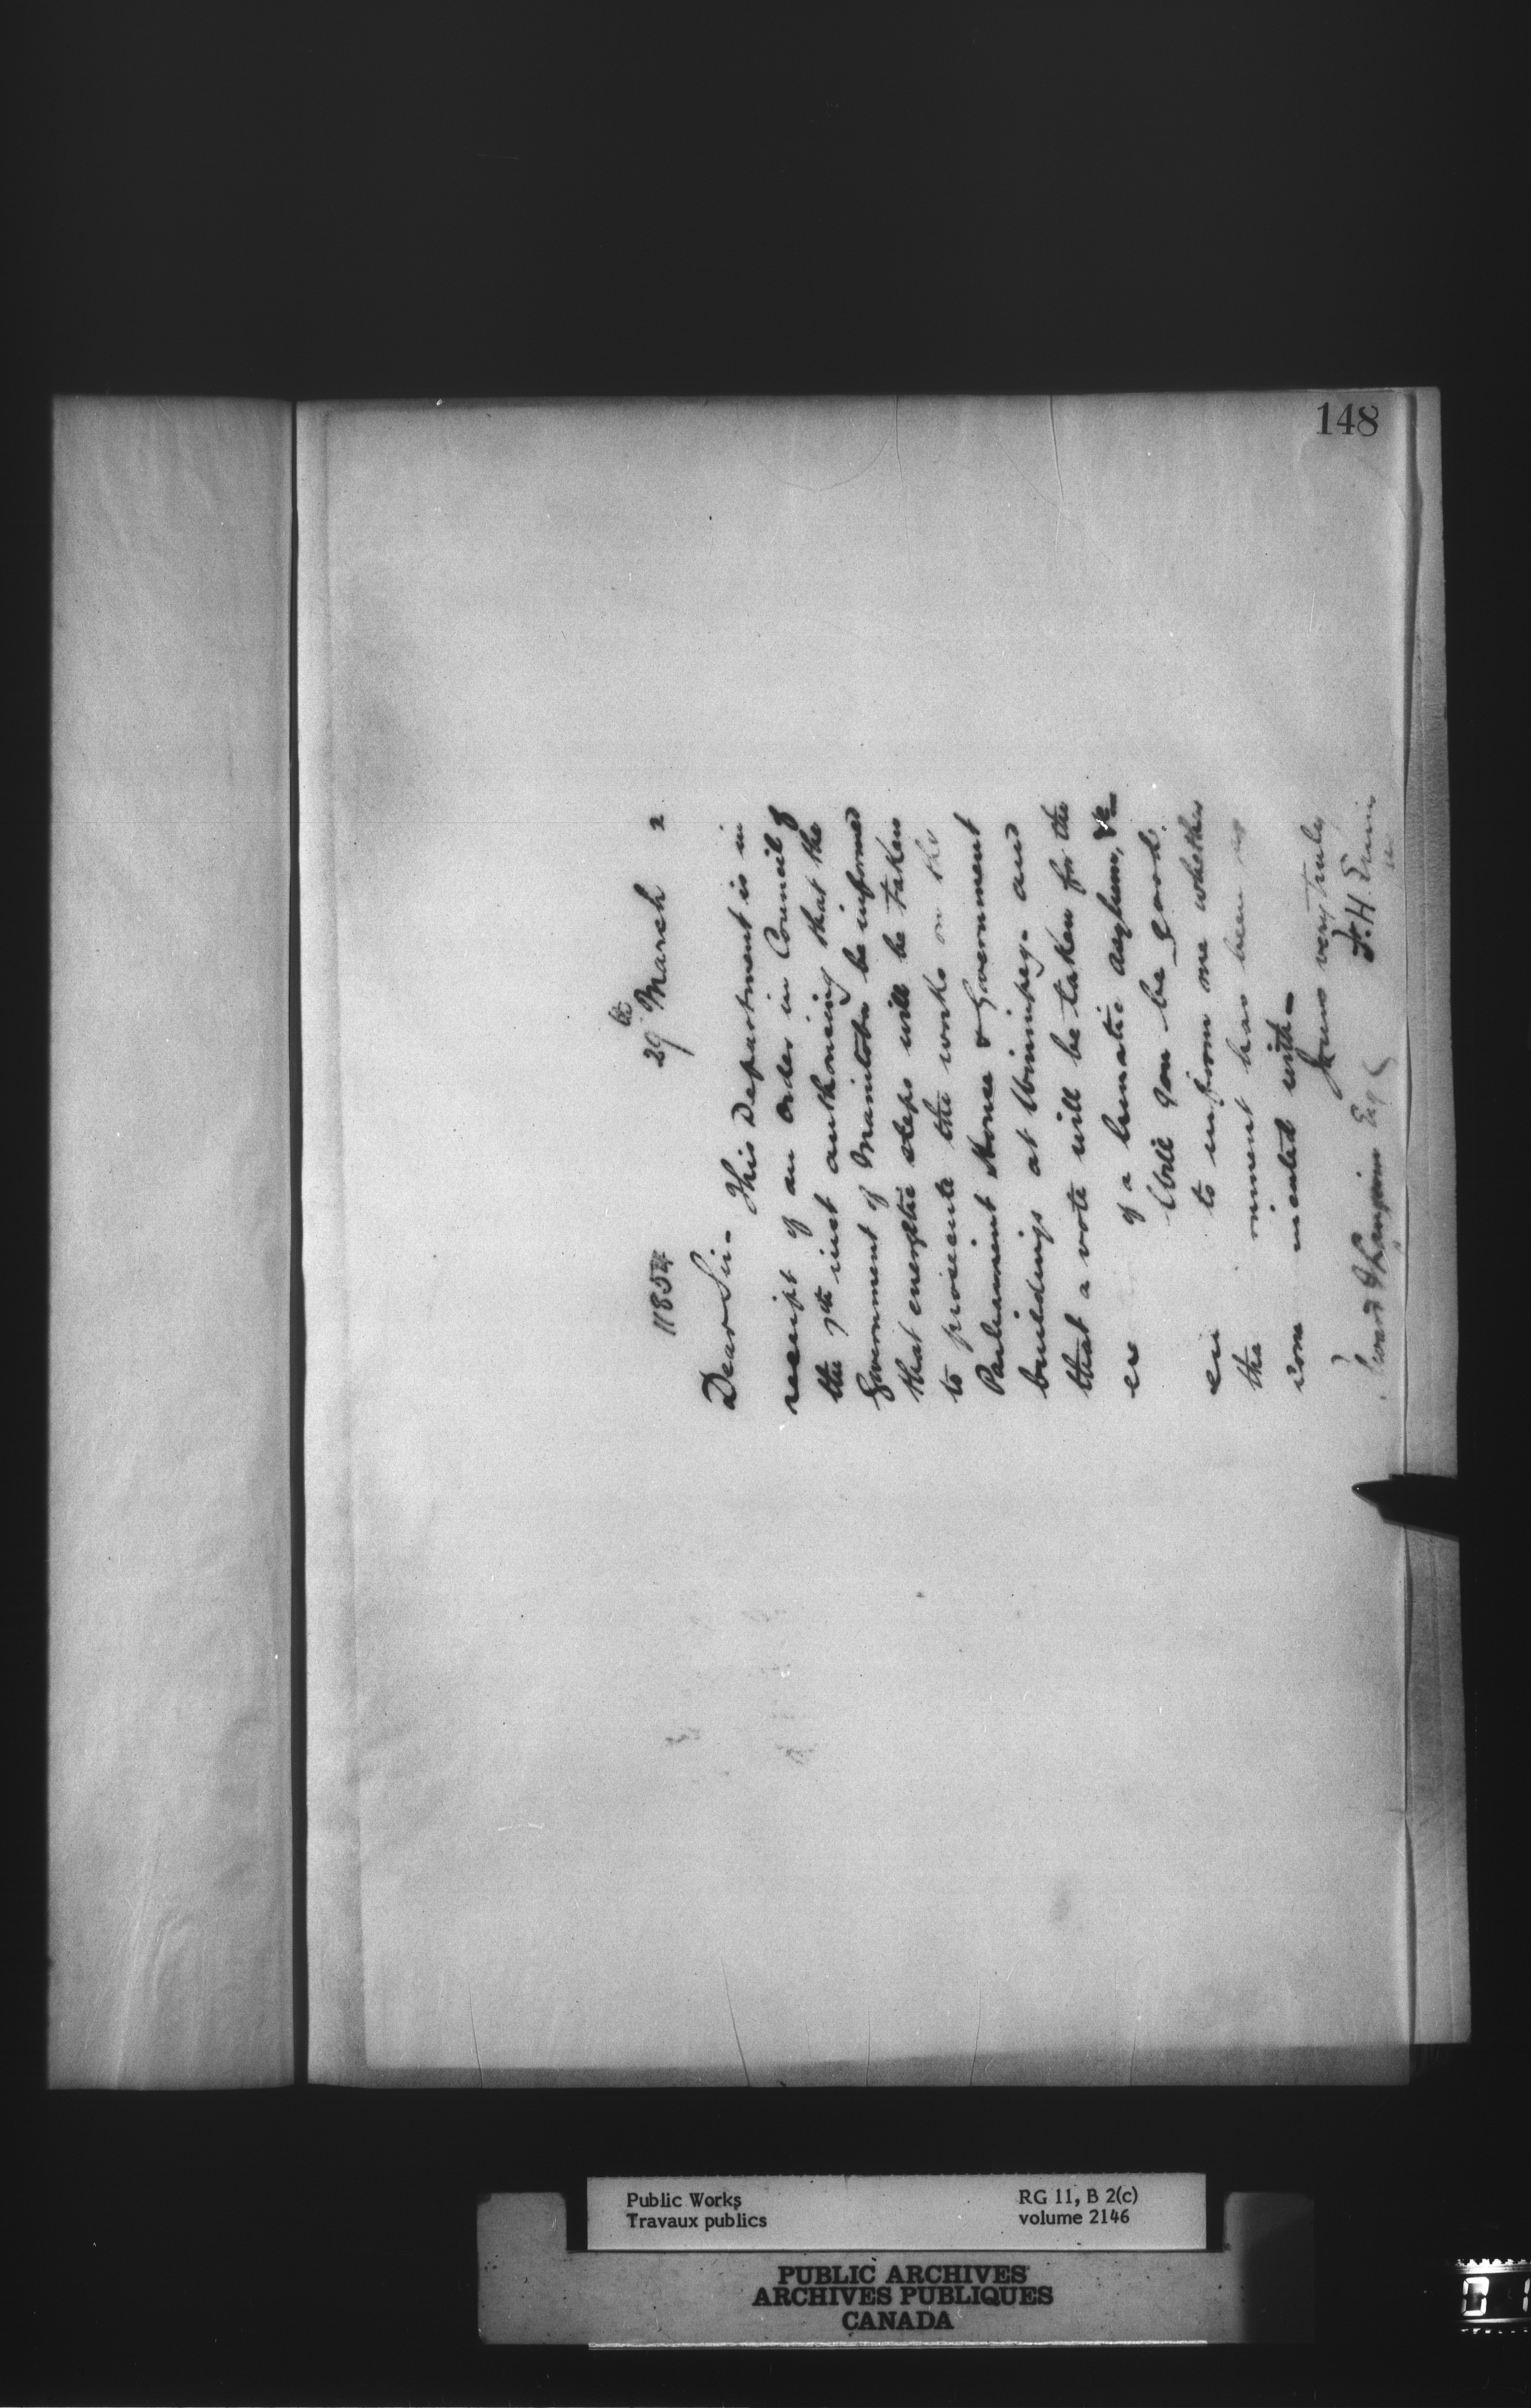 148
11854
29th March 2
Dear Sir -
This Department is in
receipt of an Order in Council of
the 7th inst authorising that the
Government of Manitoba be informed
that energetic steps will be taken
to prosecute the works on the
Parliament House & Government
buildings at Winnipeg - and
that a vote will be taken for the
of a lunatic asylum, &c -
Will you be good
to inform me whether
the ment has been
com nicated with -
Yours very truly
F. H. Ennis
Langevin Esq
Public Works
Travaux publics
RG 11, B 2(c)
volume 2146
PUBLIC ARCHIVES
ARCHIVES PUBLIQUES
CANADA